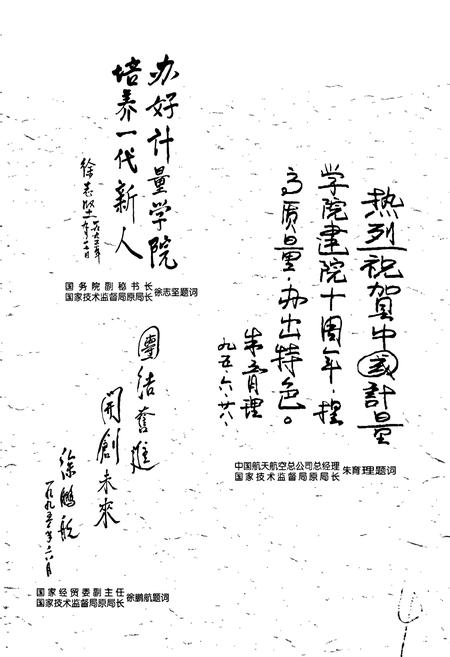 办好计量学院
培养一代新人
徐志坚
国务院副秘书长
国家技术监督局原局长 徐志坚题词
热烈祝贺中国计量
学院建院十周年，提
高质量，办出特色。
朱育理
九五·六·廿八·
中国航天航空总公司总经理
国家技术监督局原局长 朱育理题词
團结奮進
開創未來
徐鹏航
一九九五年六月
国家经贸委副主任
国家技术监督局原局长 徐鹏航题词